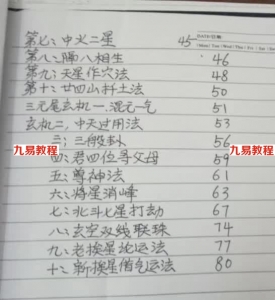 第七：中火二星 45
第八：隔八相生 46
第九：天星作穴法 48
第十：廿四山科土法 50
三元尾玄机一.混元一气 51
玄机二，中天过用法 53
三：三般卦 56
四：君四位寻父母 59
五：尊神法 61
六：将星消峰 63
七：北斗七星打劫 67
八：玄空双线联珠 74
九：老挨星论运法 77
十：新挨星借气运法 80
九易教程
九易教程